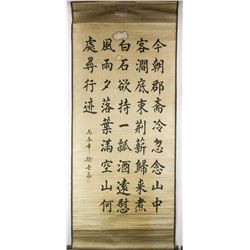 今朝郡齋冷忽念山中
客澗底束荊薪歸來煮
白石欲持一瓢酒遠慰
風雨夕落葉滿空山何
處尋行迹